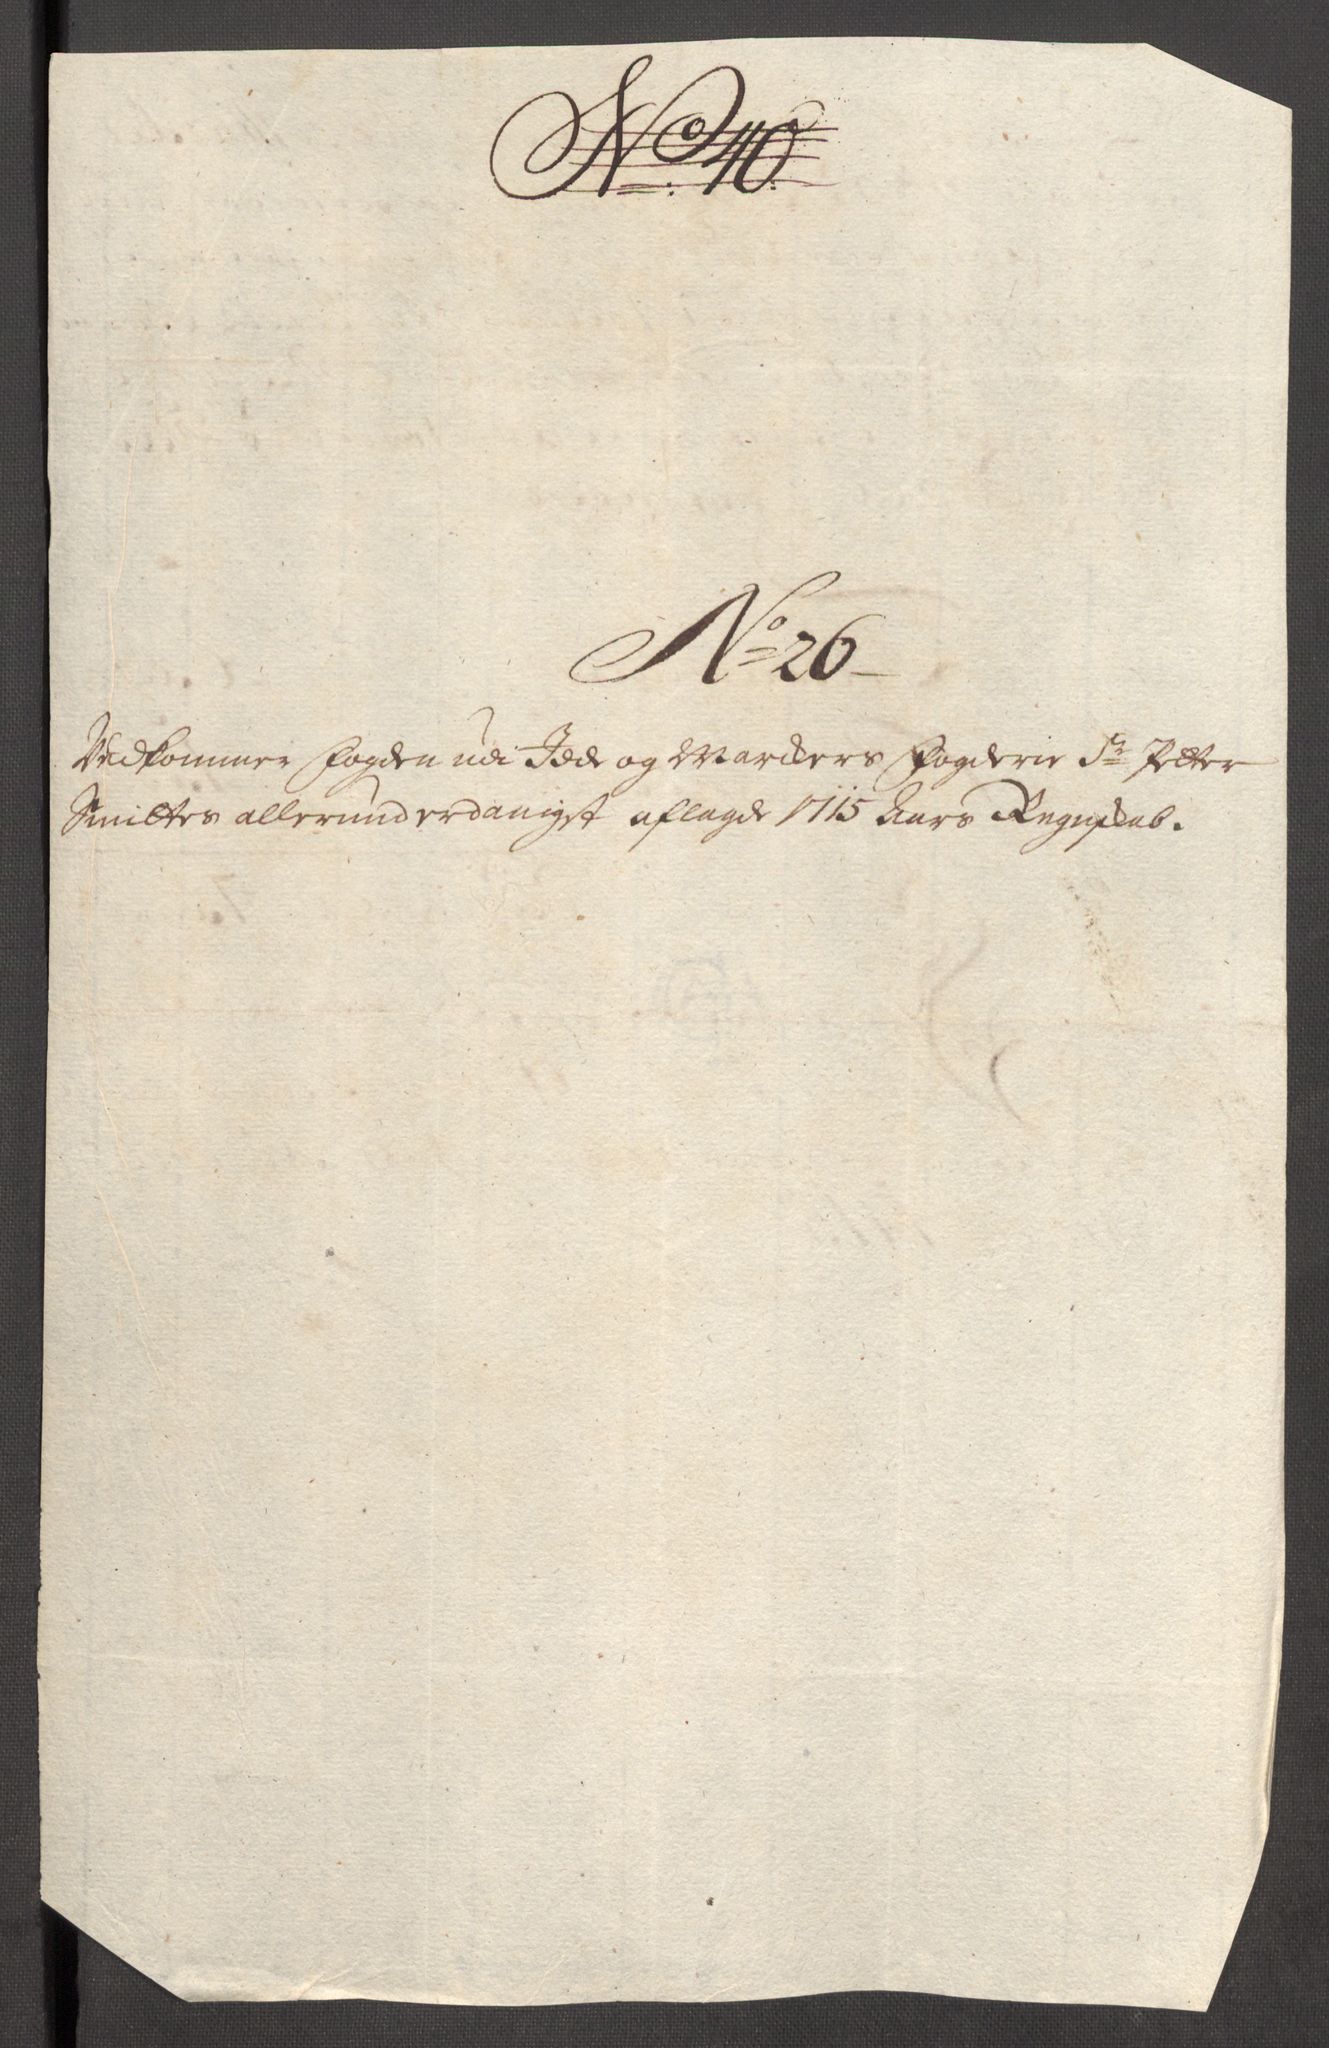 No 40
No 26
Vedkommer Fogden udi Idde og Markers Fogderie Sr Petter
Smittes allerunderdanigst aflagde 1715 Aars Regnskab.